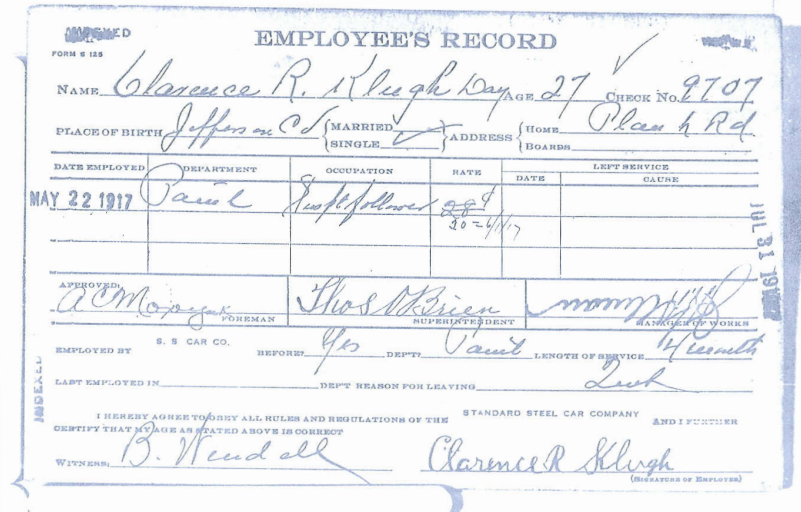 INDEXED
EMPLOYEE'S RECORD
FORM S 125
NAME Clarence R. Klugh Day AGE 27 CHECK No. 9707
PLACE OF BIRTH Jefferson Co MARRIED SINGLE ADDRESS HOME Rd BOARDS
DATE EMPLOYED DEPARTMENT OCCUPATION RATE LEFT SERVICE
DATE CAUSE
MAY 22 1917 Paint follower 28¢
30 = 6/1/17
JUL 31 19
APPROVED:
A C FOREMAN Thos O'Brien SUPERINTENDENT MANAGER OF WORKS
EMPLOYED BY S. S CAR CO. BEFORE? Yes DEP'T? Paint LENGTH OF SERVICE 4 month
LAST EMPLOYED IN DEP'T REASON FOR LEAVING Quit
INDEXED
I HEREBY AGREE TO OBEY ALL RULES AND REGULATIONS OF THE STANDARD STEEL CAR COMPANY AND I FURTHER
CERTIFY THAT MY AGE AS STATED ABOVE IS CORRECT
WITNESS: B. Wendall Clarence R Klugh
(SIGNATURE OF EMPLOYEE)